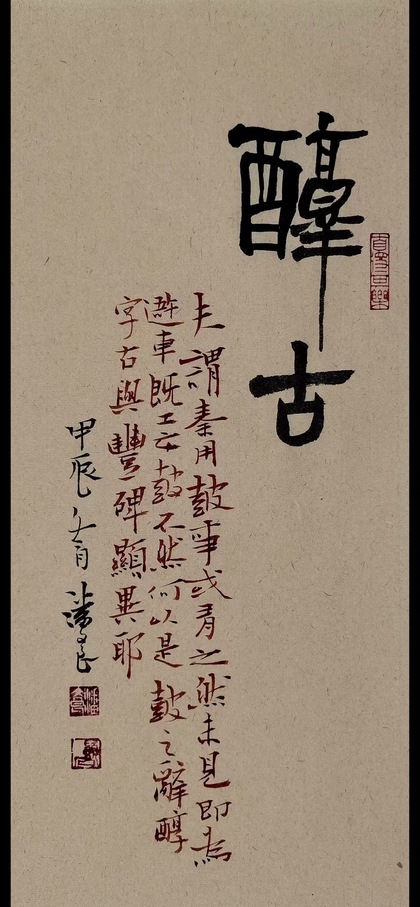 醇古
夫謂秦用鼓事或有之然未見即為
遊車既工之鼓不然何以是鼓之辭醇
字古與豐碑顯異耶
甲辰